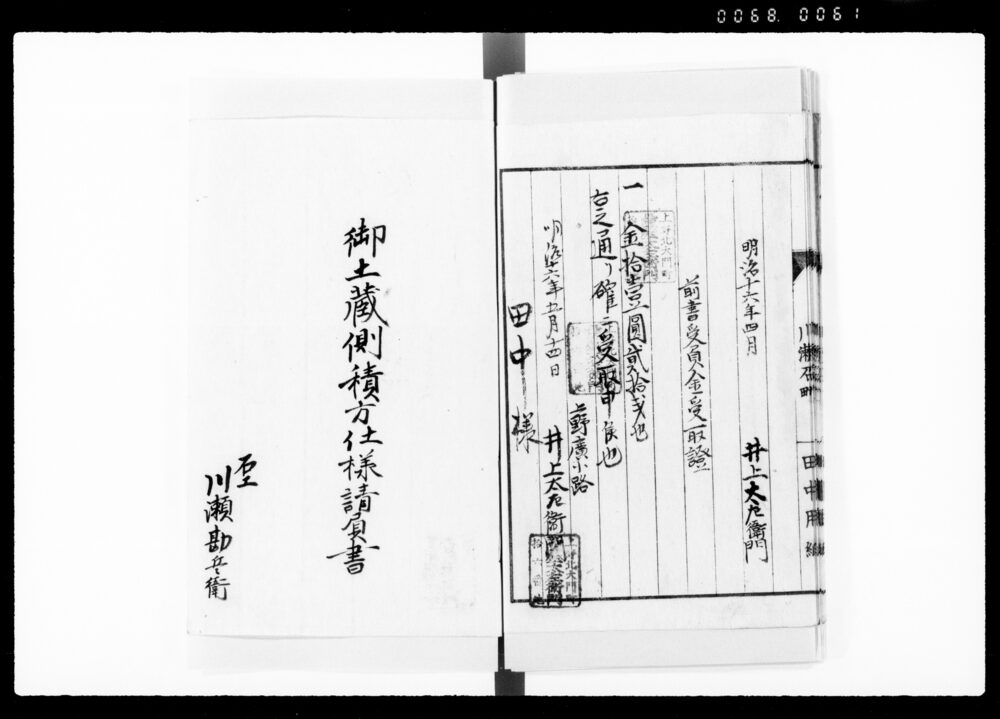 0068. 0061
明治十六年四月
井上太左衛門
前書受負金受取證
一 金拾壹圓貳拾戔也
右之通リ確ニ受取申候也
明治十六年五月十四日
上野廣小路
井上太左衛門
田中 様
田中用紙
御土蔵側積方仕様請負書
石工
川瀬勘兵衛